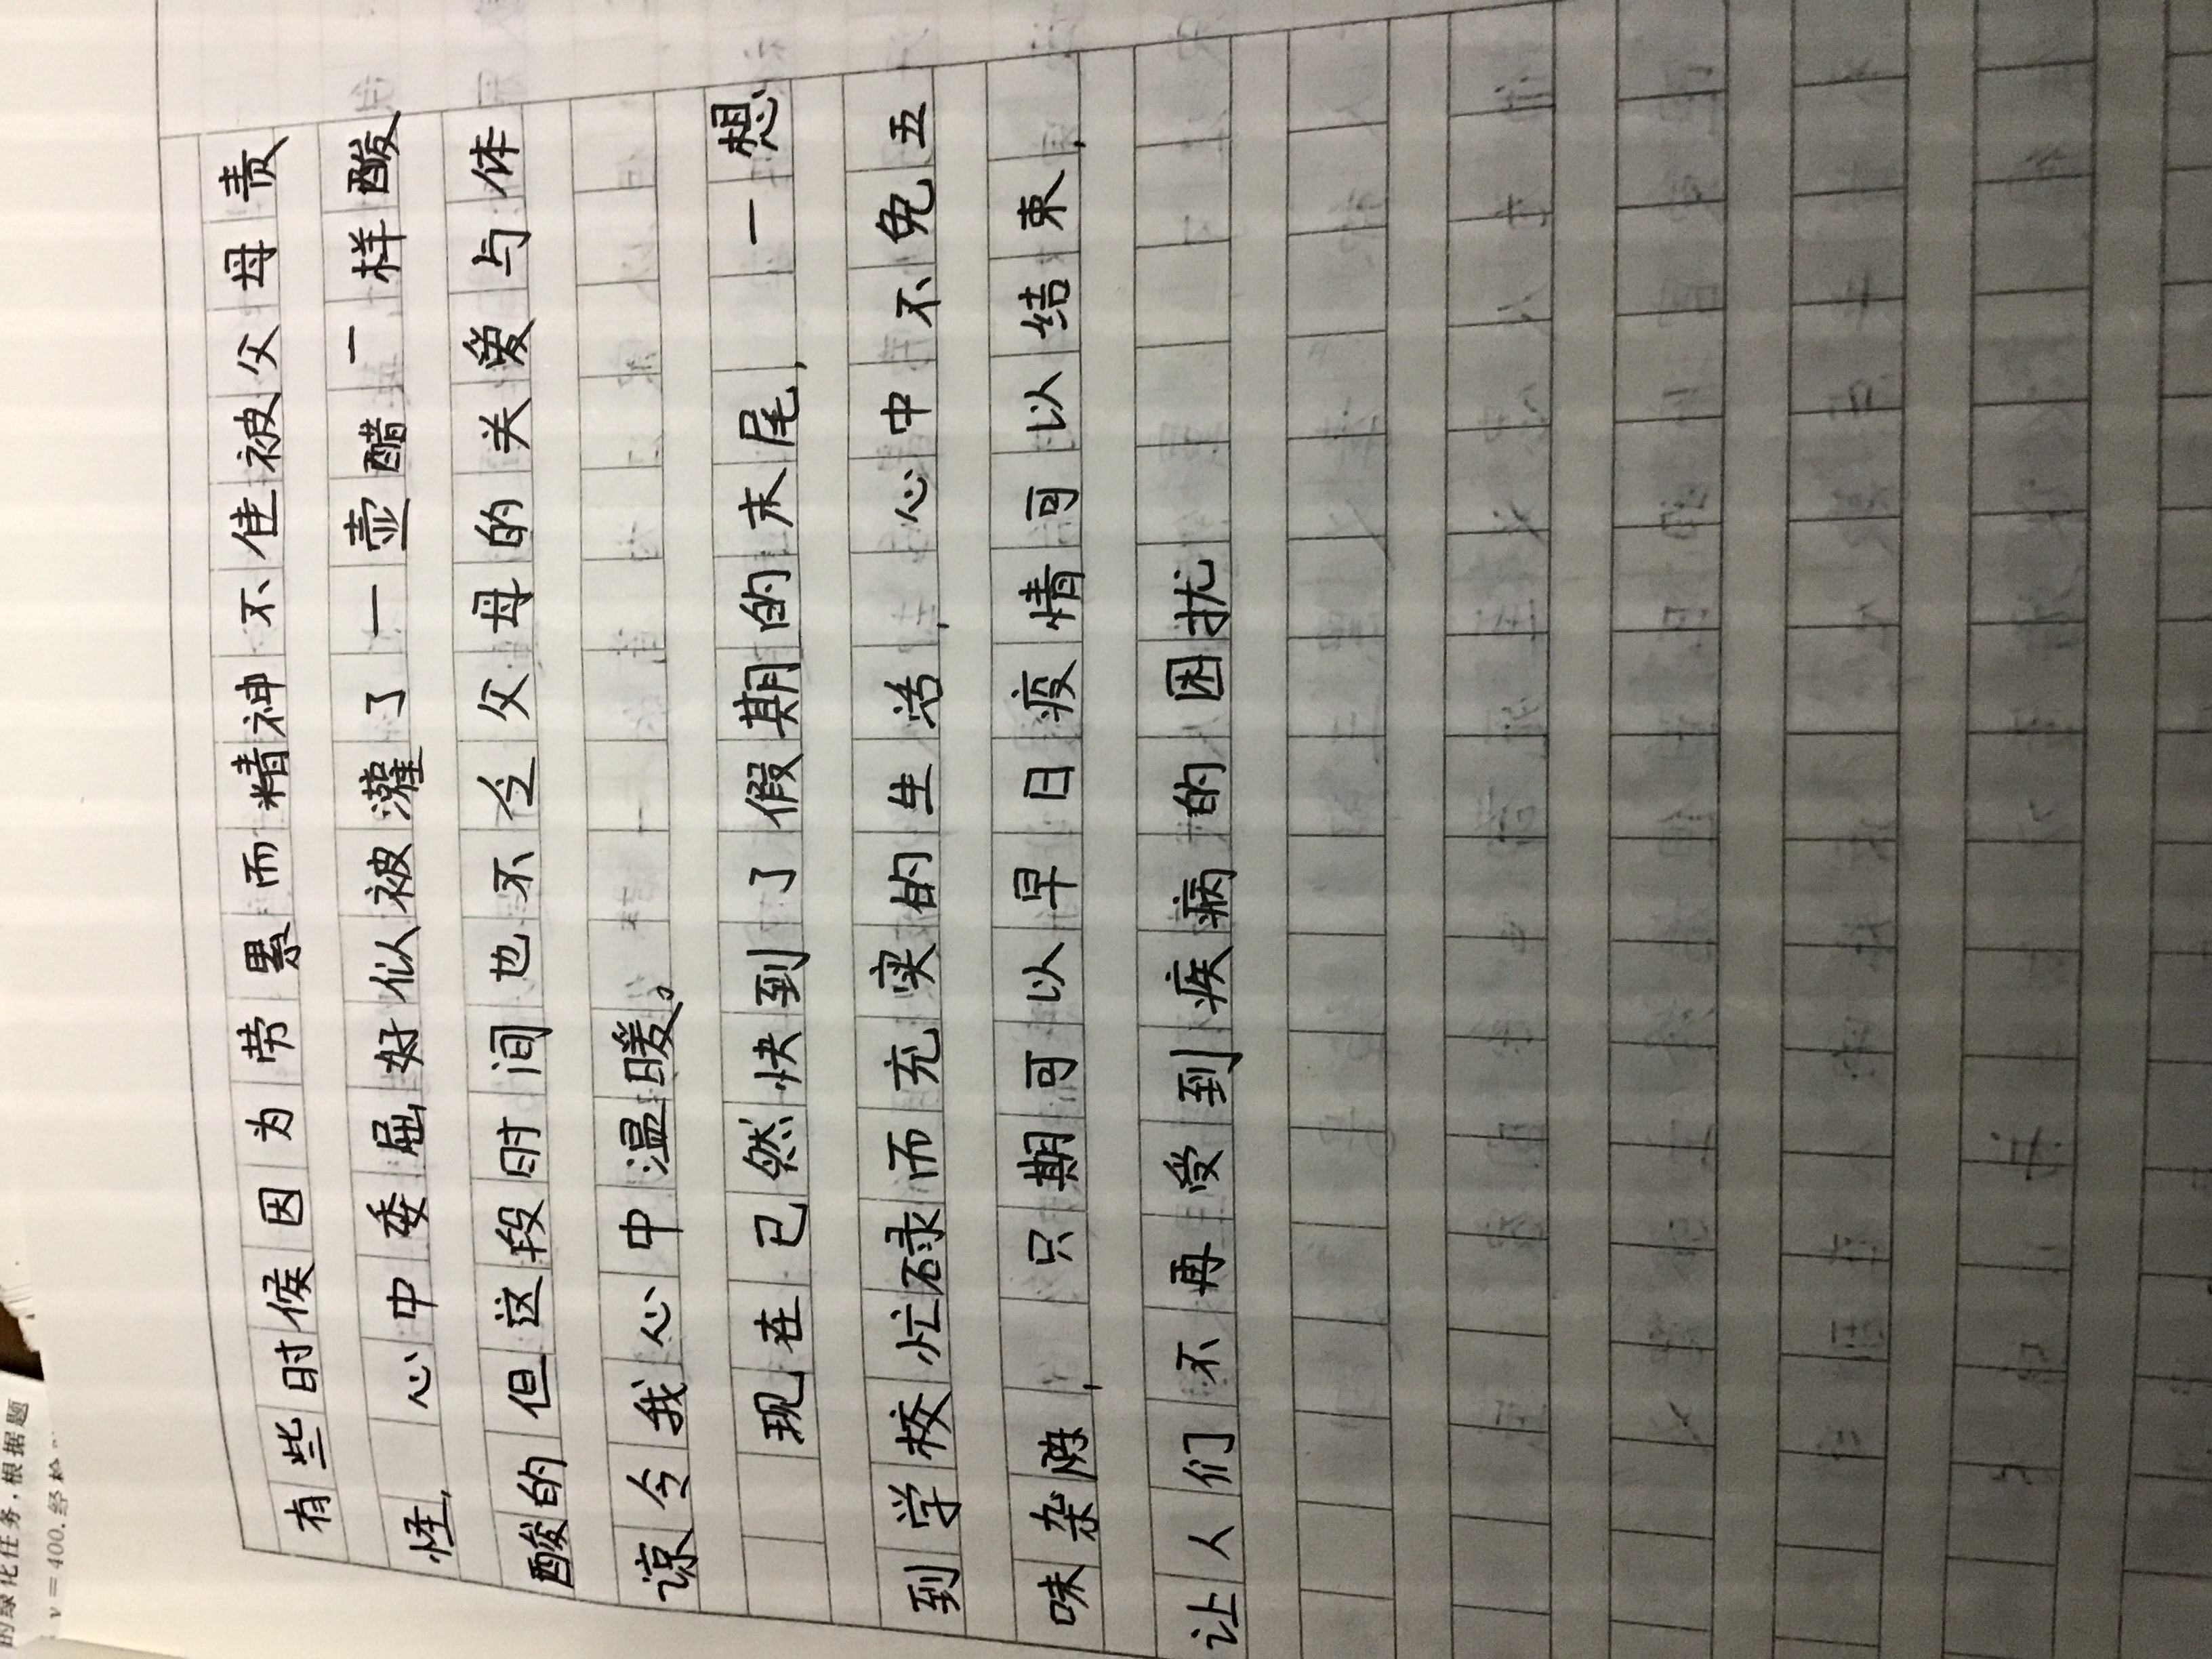 的绿化任务,根据题
v=400.经检
有些时候因为劳累而精神不佳被父母责
怪,心中委屈好似被灌了一壶醋一样酸
酸的但这段时间也不令父母的关爱与体
谅令我心中温暖。
现在已然快到了假期的末尾,一想
到学校忙碌而充实的生活,心中不免五
味杂陈,只期可以早日疫情可以结束,
让人们不再受到疾病的困扰